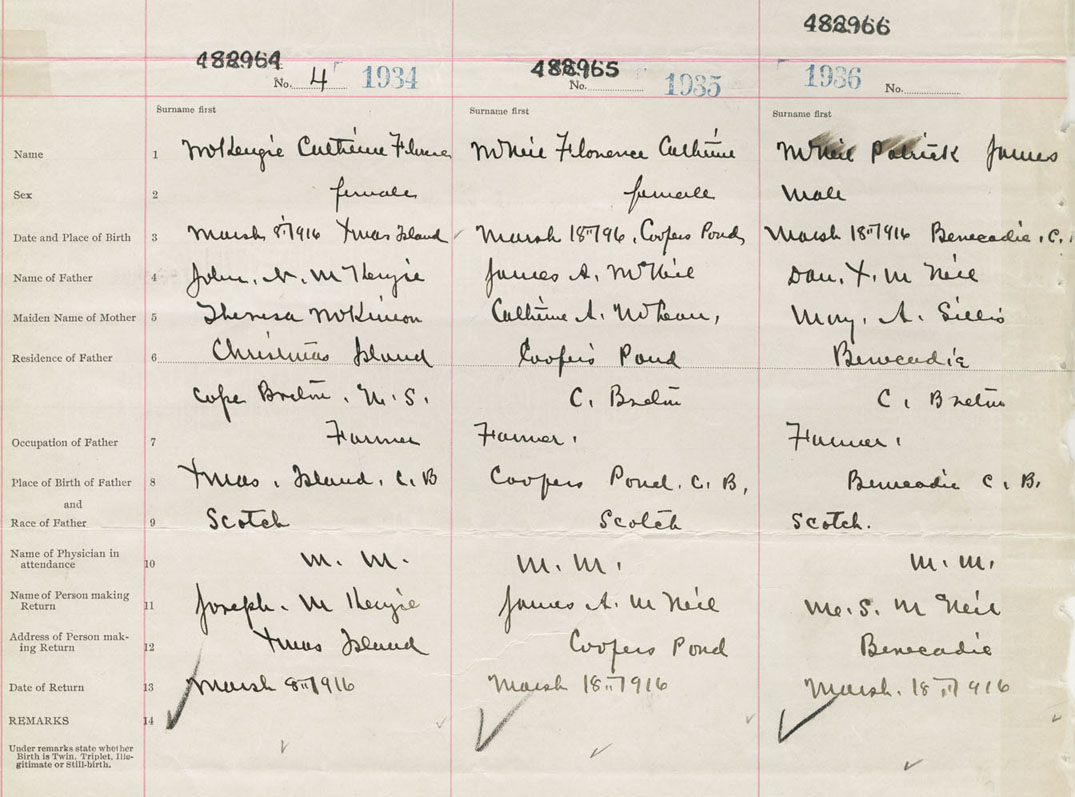 488966
488964 488965
No. 4 1934 No. 1935 1936 No.
Surname first Surname first Surname first
Name 1 McKenzie Catherine Florence McNeil Florence Catherine McNeil Patrick James
Sex 2 female female male
Date and Place of Birth 3 March 8" 1916 Xmas Island March 18" 1916, Coopers Pond, March 18" 1916 Benecadie, C.
Name of Father 4 John. N. McKenzie James A. McNeil Dan. X. McNeil
Maiden Name of Mother 5 Theresa McKinnon Catherine A. McLean, Mary. A. Gillis
Residence of Father 6 Christmas Island Coopers Pond Benecadie
Cape Breton. N.S. C. Breton C. Breton
Occupation of Father 7 Farmer Farmer. Farmer.
Place of Birth of Father 8 Xmas. Island. C.B Coopers Pond. C.B, Benecadie C.B.
and
Race of Father 9 Scotch Scotch Scotch.
Name of Physician in
attendance 10 M. M. M. M. M. M.
Name of Person making
Return 11 Joseph. McKenzie James A. McNeil S. McNeil
Address of Person mak-
ing Return 12 Xmas Island Coopers Pond Benecadie
Date of Return 13 March 8" 1916 March 18" 1916 March. 18" 1916
REMARKS 14
Under remarks state whether
Birth is Twin, Triplet, Ille-
gitimate or Still-birth.